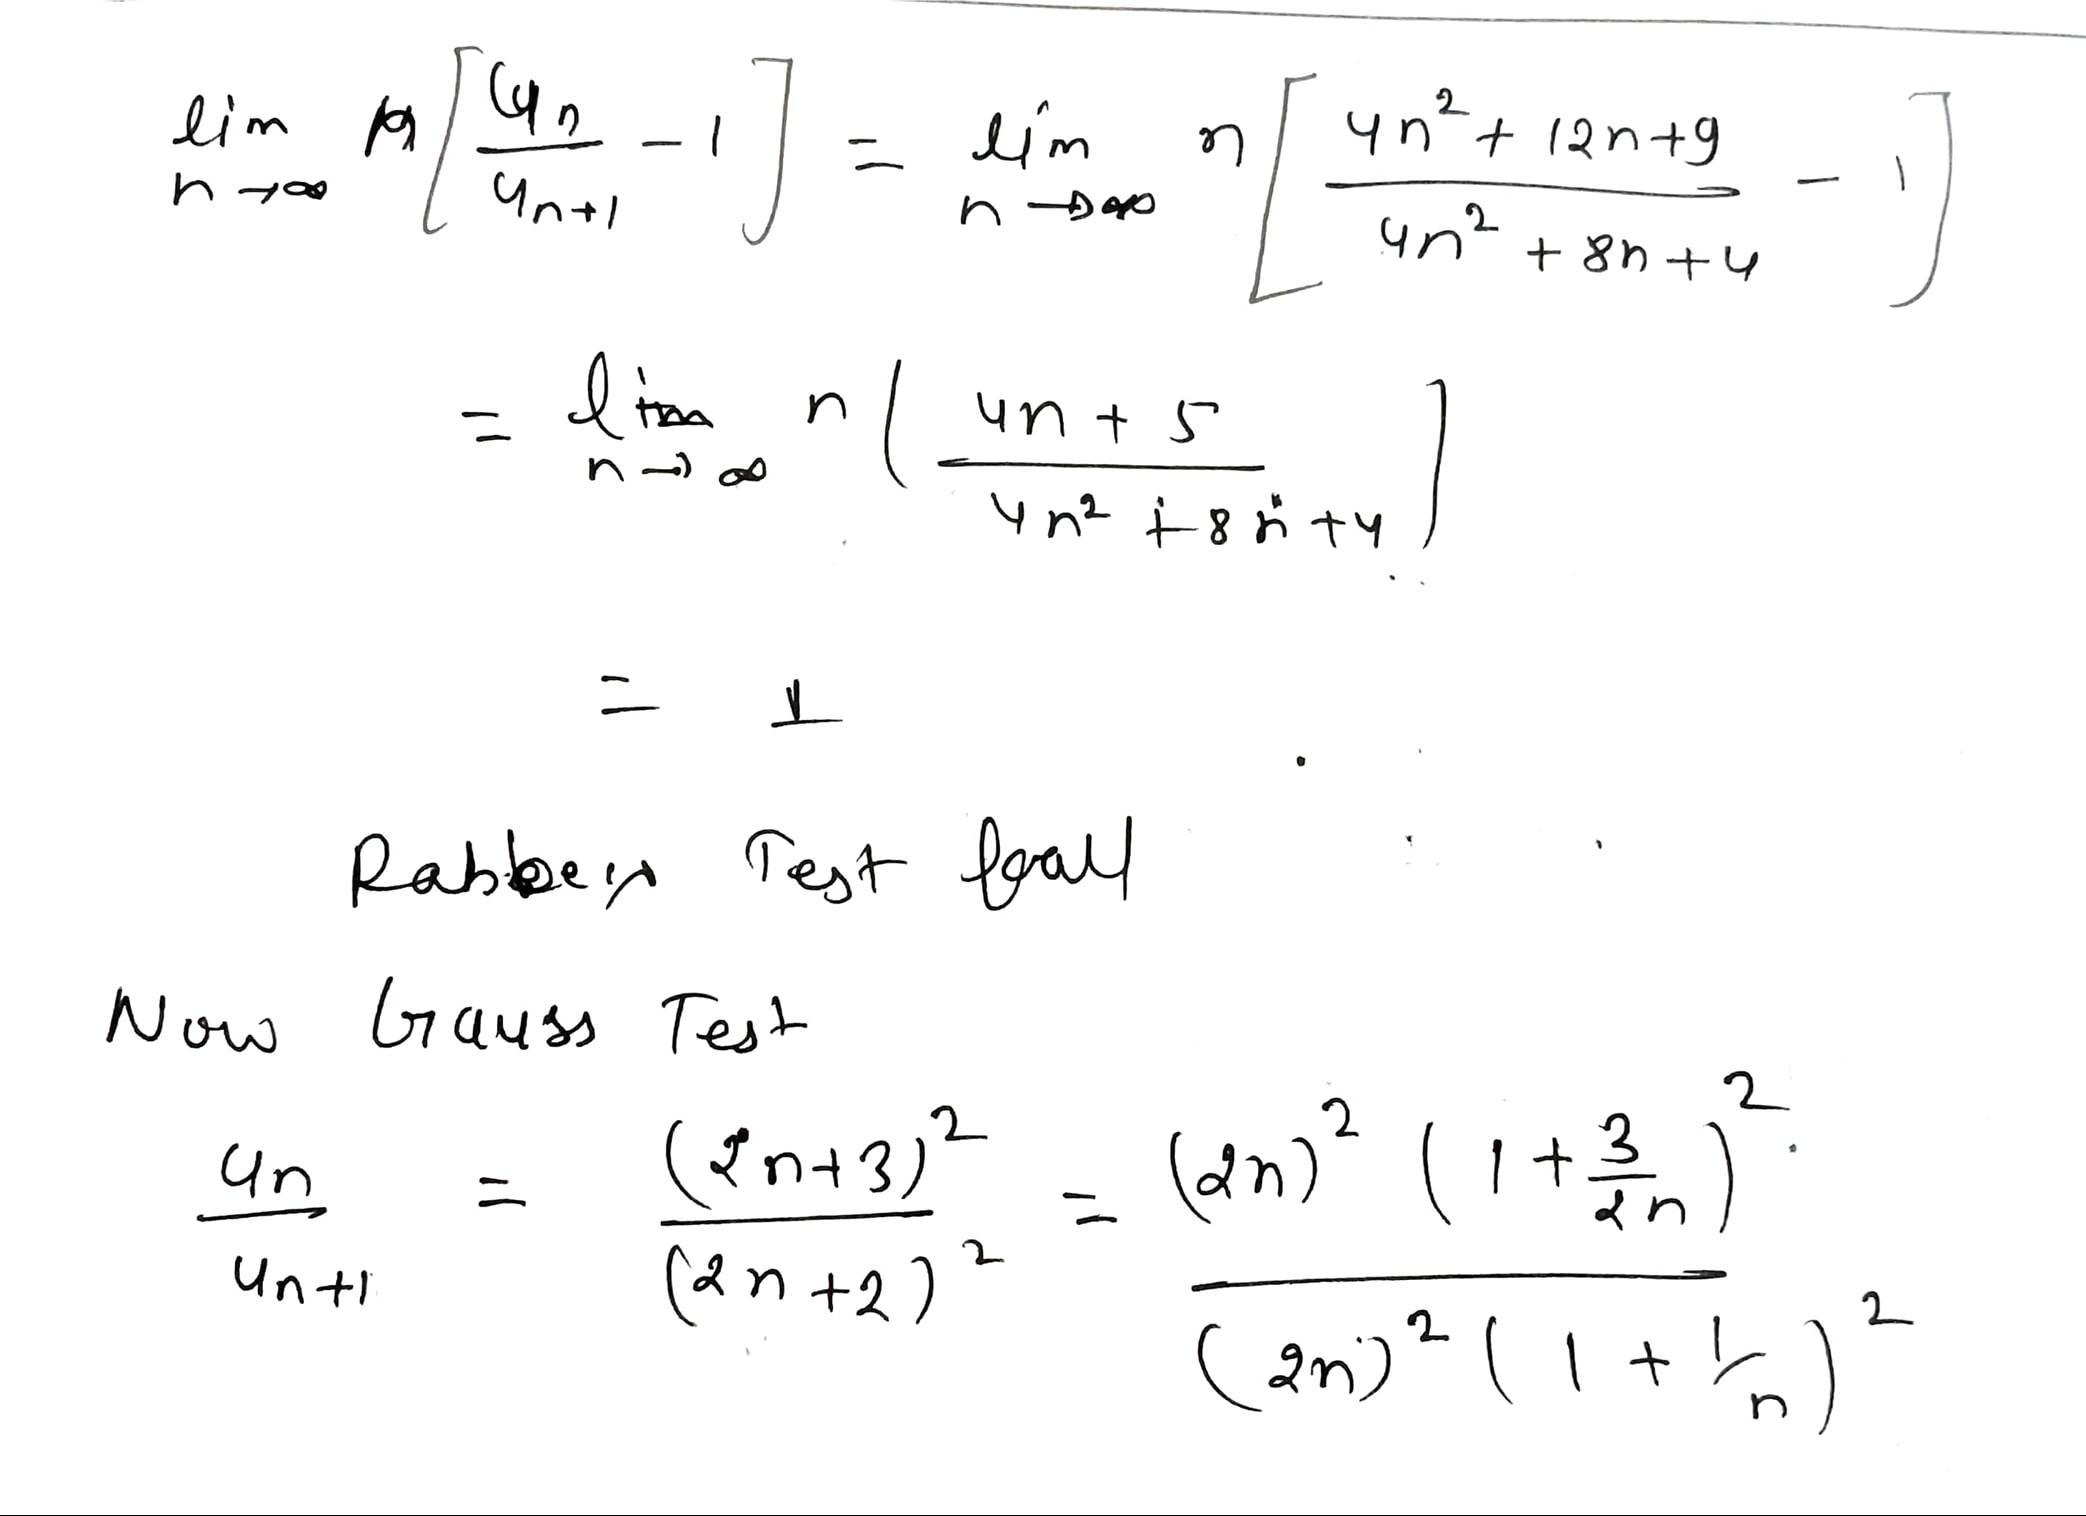 lim n→∞ n [ u_n / u_{n+1} − 1 ] = lim n→∞ n [ (4n² + 12n + 9) / (4n² + 8n + 4) − 1 ]
= lim n→∞ n ( (4n + 5) / (4n² + 8n + 4) )
= 1
Test
Now Gauss Test
u_n / u_{n+1} = (2n+3)² / (2n+2)² = (2n)² (1 + 3/2n)² / (2n)² (1 + 1/n)²